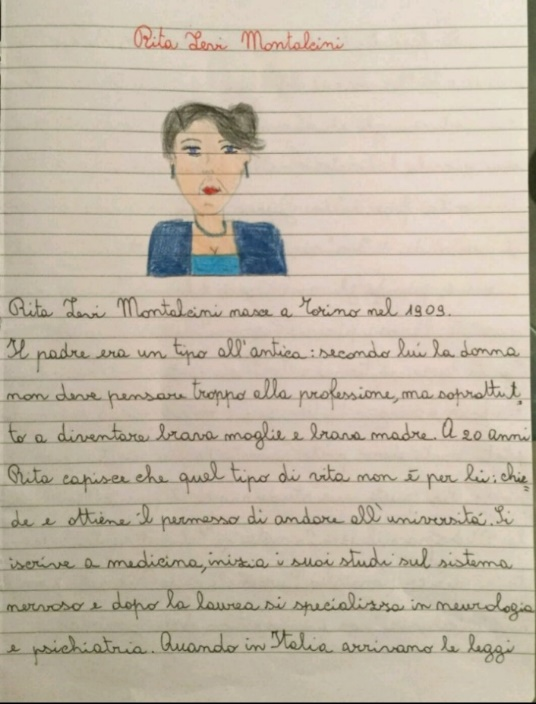 Rita Levi Montalcini
Rita Levi Montalcini nasce a Torino nel 1909.
Il padre era un tipo all'antica: secondo lui la donna
non deve pensare troppo alla professione, ma soprattut_
to a diventare brava moglie e brava madre. A 20 anni
Rita capisce che quel tipo di vita non è per lei: chie_
de e ottiene il permesso di andare all'università. Si
iscrive a medicina, inizia i suoi studi sul sistema
nervoso e dopo la laurea si specializza in neurologia
e psichiatria. Quando in Italia arrivano le leggi